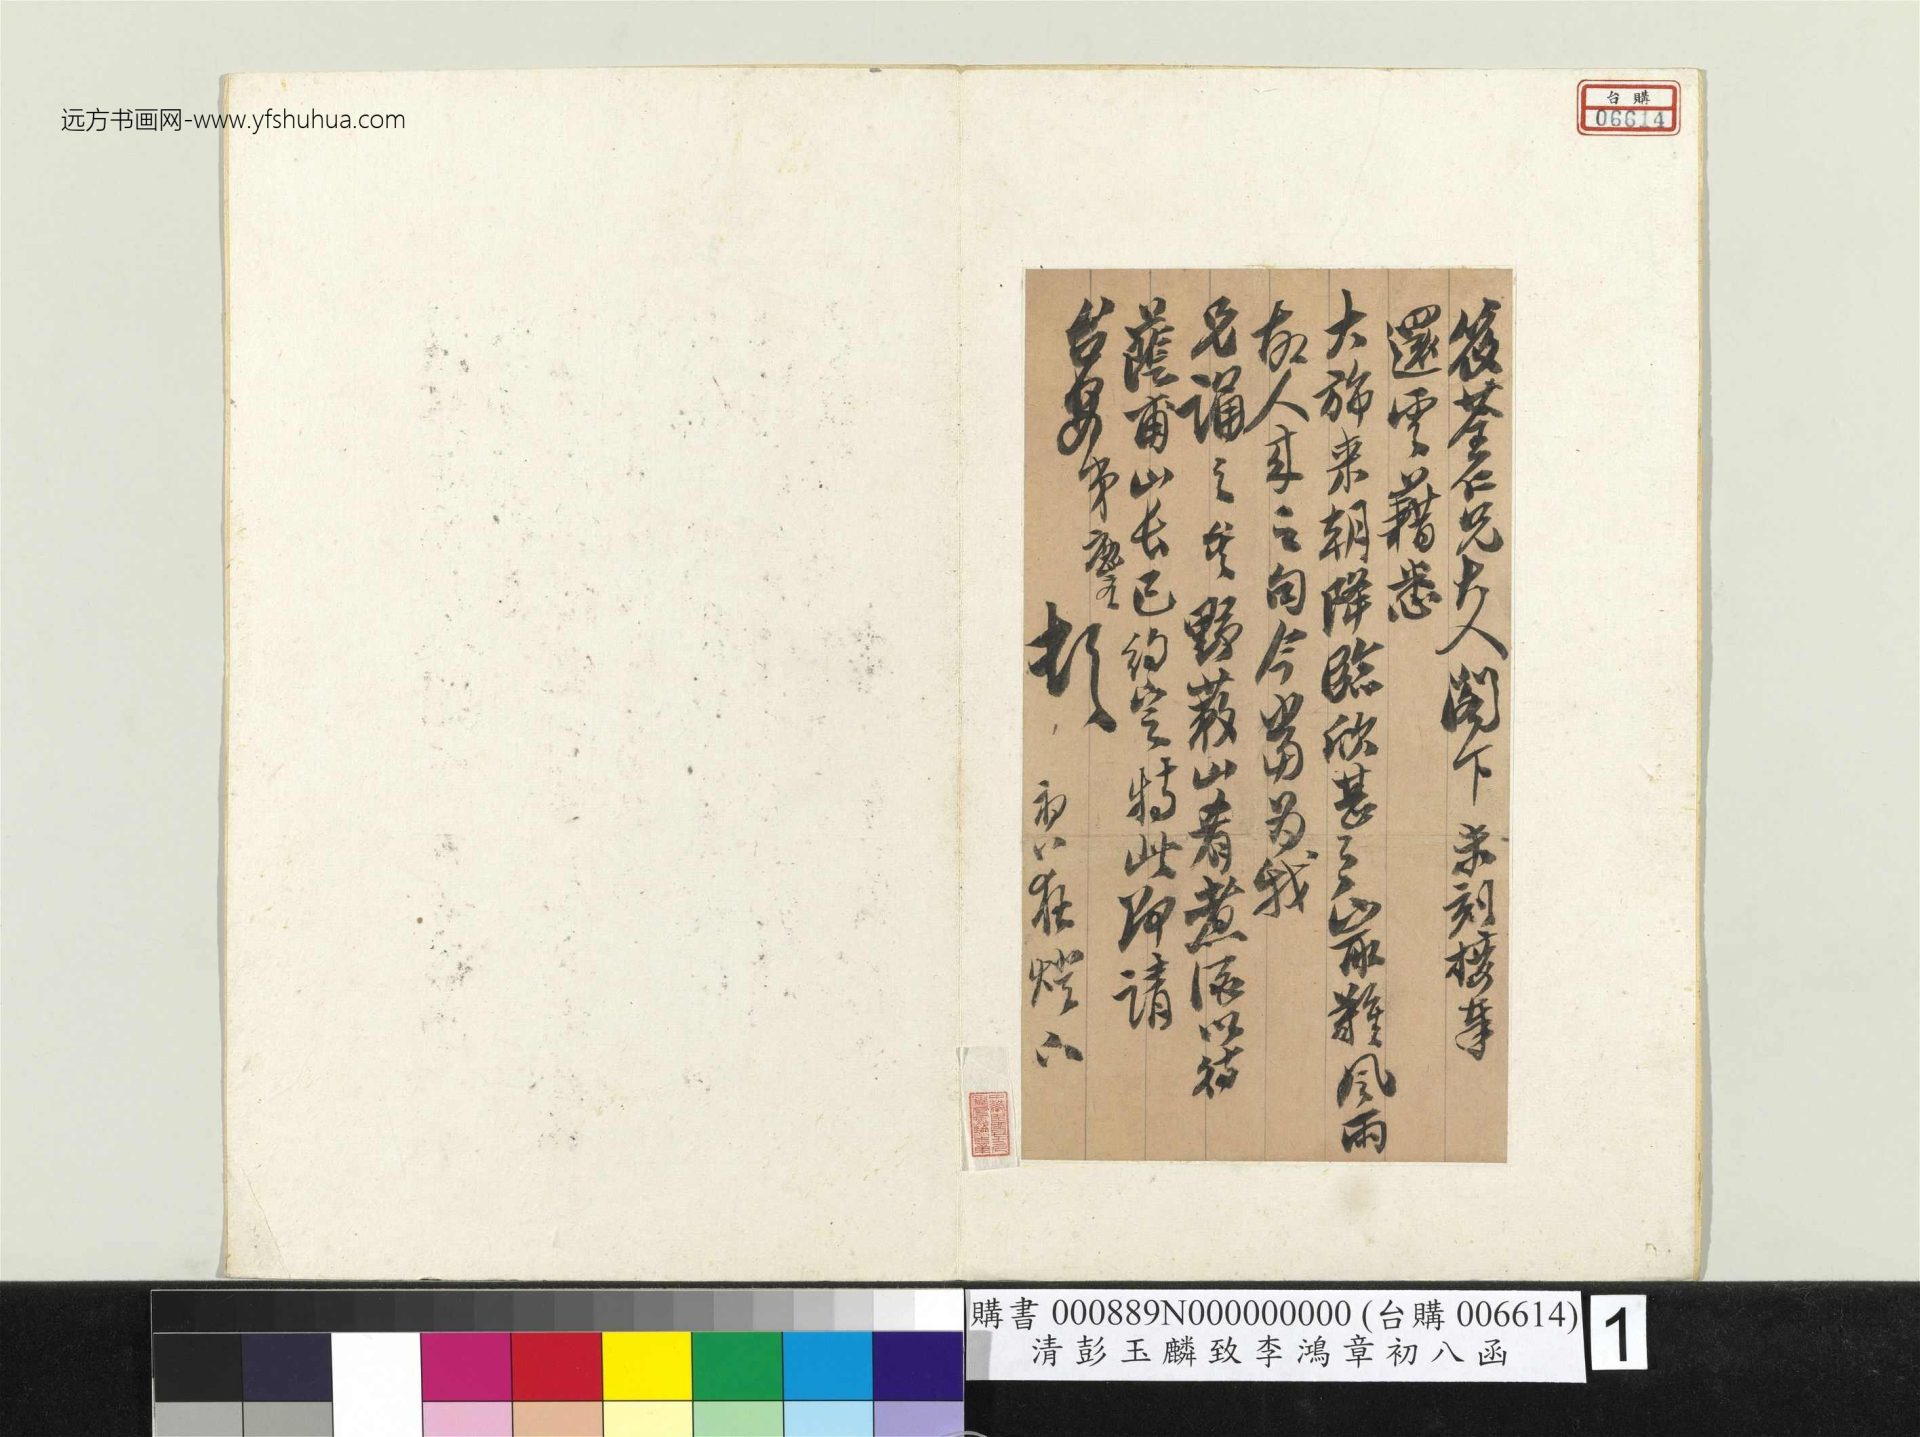 远方书画网-www.yfshuhua.com
台購
06614
筱荃仁兄大人閣下 刻接華
還雲藉悉
大旆来朝降臨欣甚之山取難風雨
故人来之句今當為我
兄誦之矣野蔌山肴煮酒以待
蔭甫山長已約定特此即請
台安弟麐
頓
初八夜燈下
購書 000889N000000000 (台購 006614)
清彭玉麟致李鴻章初八函
1